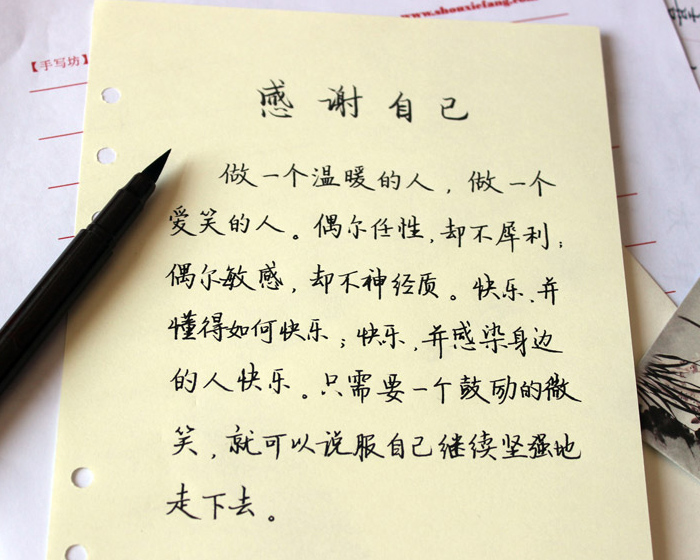 www.shouxiefang.co
【手写坊】
感谢自己
做一个温暖的人，做一个
爱笑的人。偶尔任性,却不犀利；
偶尔敏感，却不神经质。快乐,并
懂得如何快乐；快乐,并感染身边
的人快乐。只需要一个鼓励的微
笑，就可以说服自己继续坚强地
走下去。